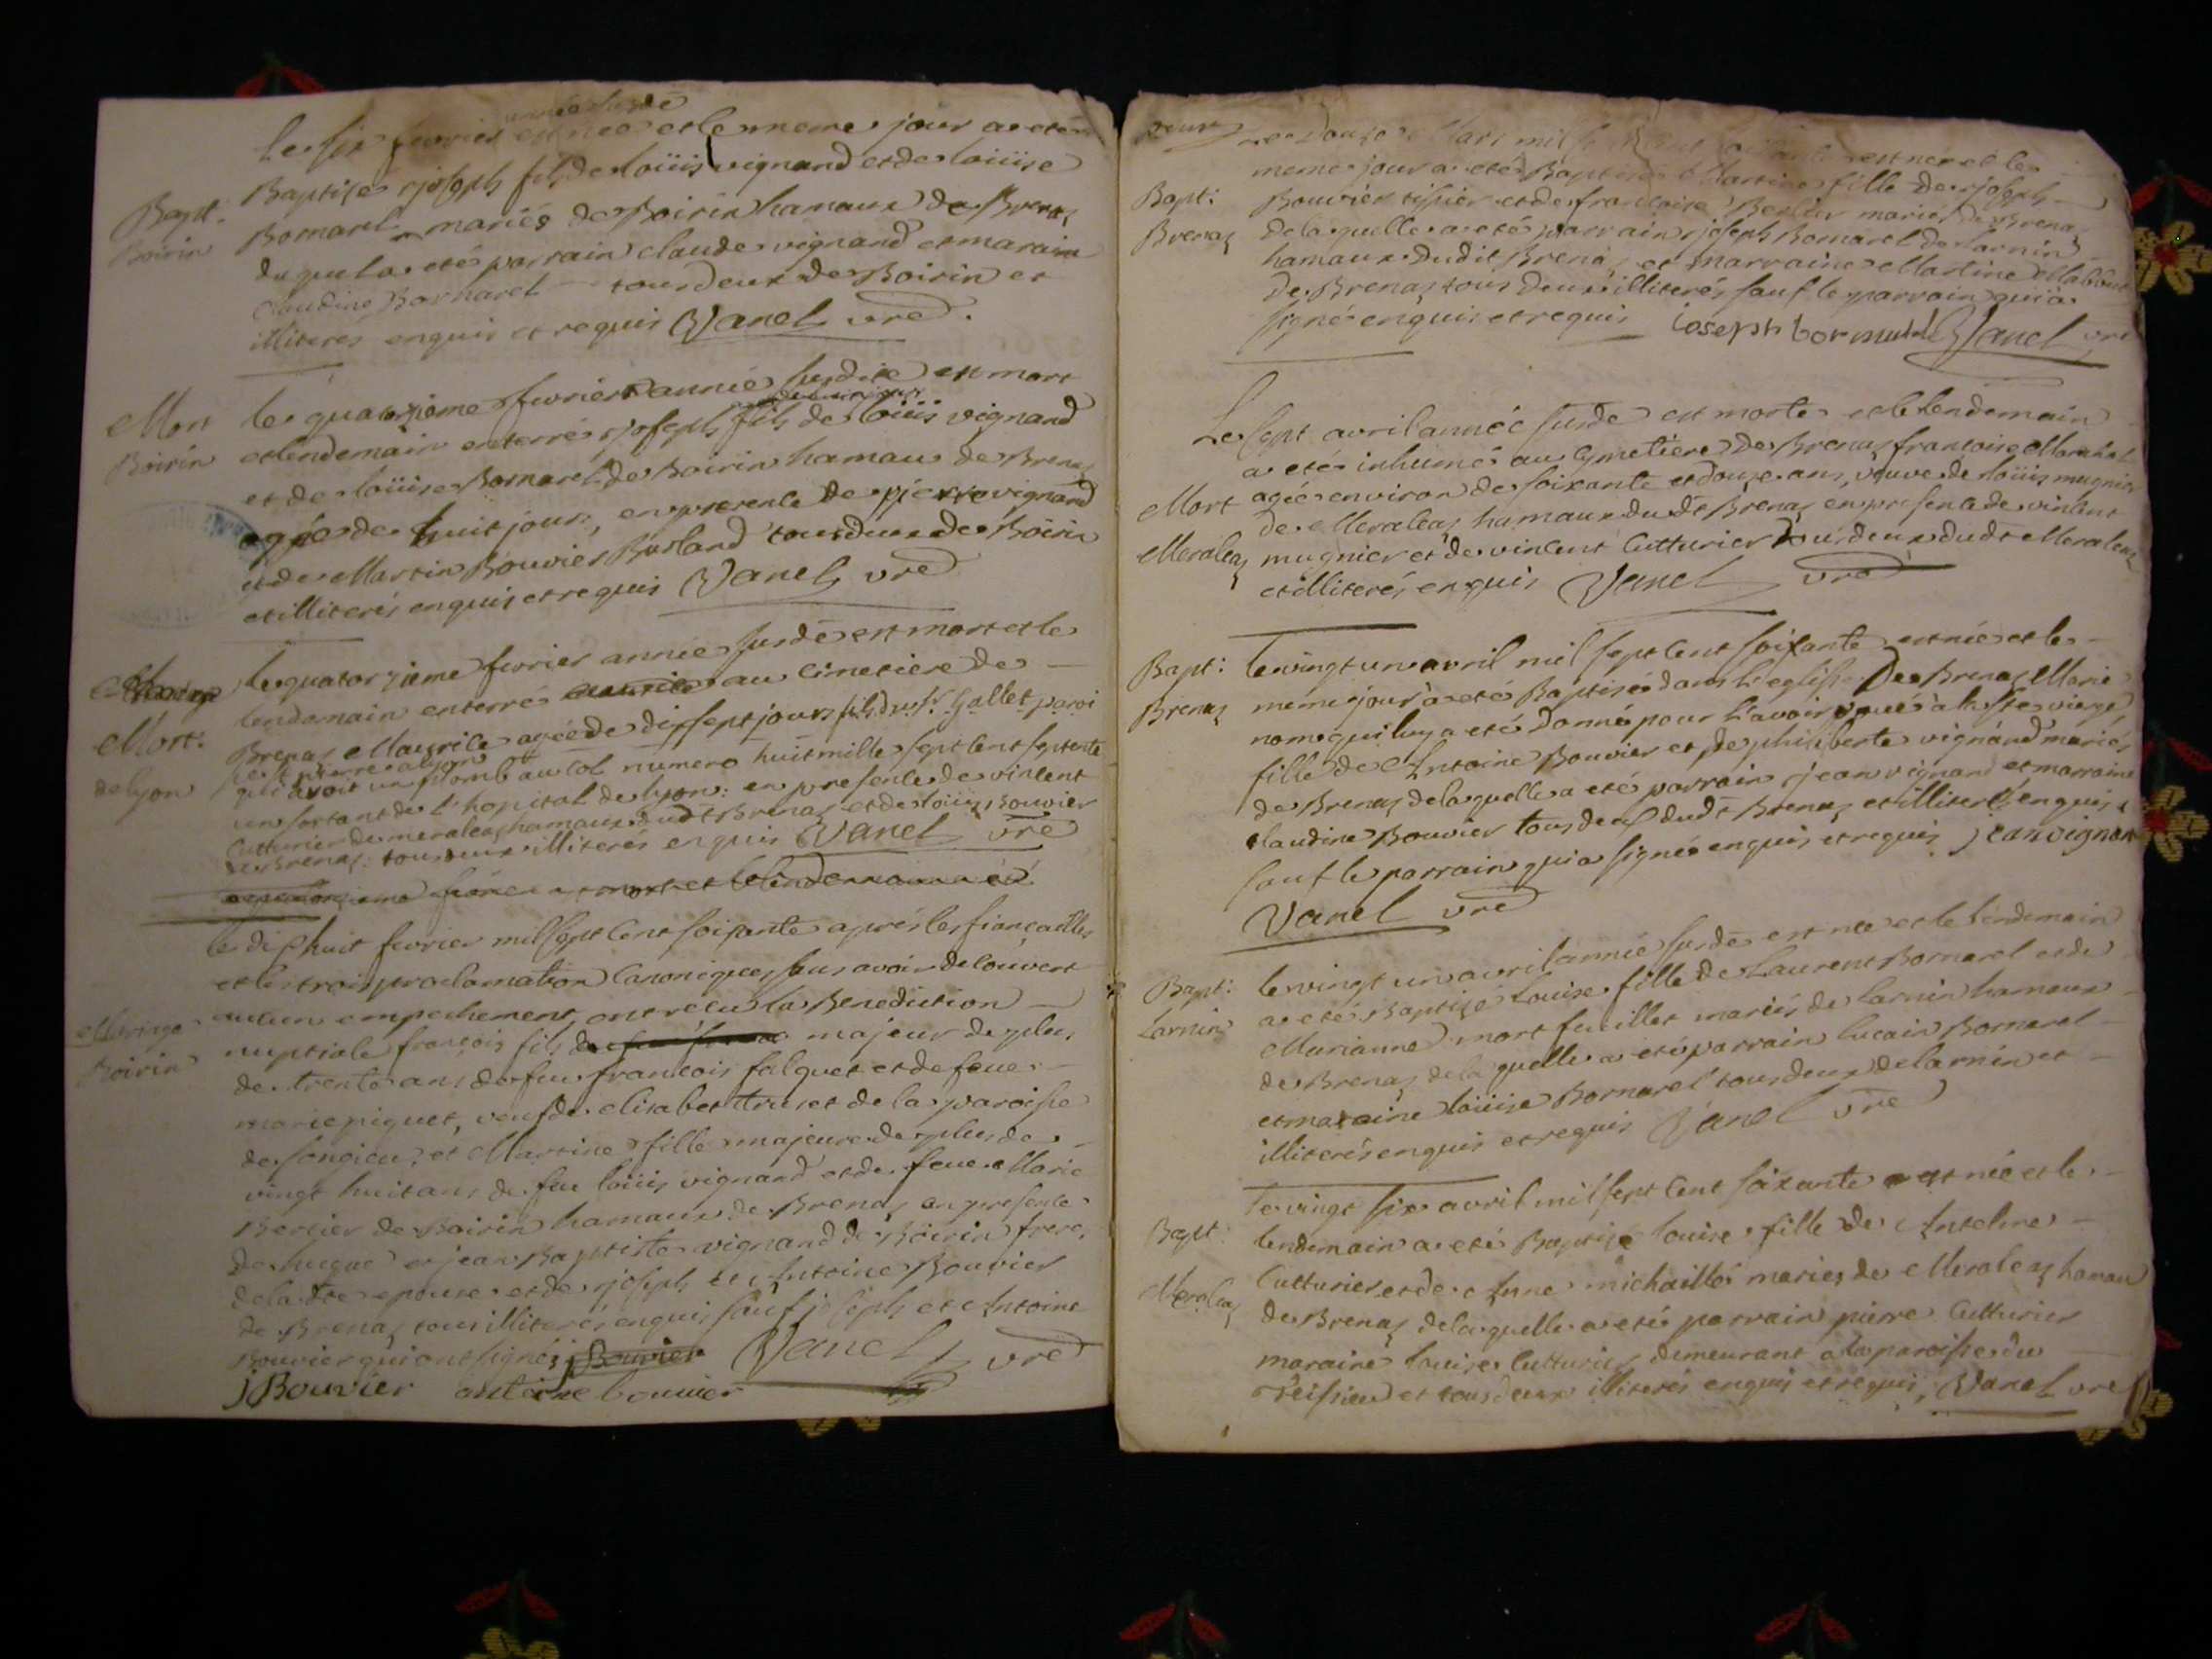 année susde
Le six fevrier est née et le meme jour a eté
Baptise joseph fils de loüis vignand et de loüise
Bapt:
Boirin
Bornarel mariés de Boirin hamaux de Brenas
du quel a eté parrain claude vignand et maraine
Claudine Bornarel tous deux de Boirin et
illiteres enquis et requis Vanel vre.
Mort
Boirin
le quatorzieme fevrier année susdite est mort
et lendemain enterré joseph fils de loüis vignand
et de loüise Bornarel de Boirin hamau de Brenas
agé de huit jours, en presence de pierre vignand
et de Martin Bouvier tous deux de Boirin
et illiterés enquis et requis Vanel vre
Mort:
de lyon
Le quatorzieme fevrier année susde est mort et le
lendemain enterré au cimetiere de
Brenas Maurice agé de dix sept jours fils du Sr. Gallet paroi
se St pierre a lyon
qui avoit un plomb au col numero huit mille sept cent septente
en sortant de l'hopital de lyon: en presence de vincent
Cutturier de meraleas hamaux dudt Brenas et de loüis Bouvier
de Brenas: tous deux illiterés enquis Vanel vre
le dix huit fevrier mil sept cent soixante aprés les fiançailles
et les trois proclamation Canoniques sans avoir decouvert
Mariage
Boirin
aucun empechement ont reçu la Benediction
nuptiale françois fils majeur de plus
de trente ans de feu francois falquet et de feue
marie piquet, veuf de elisabet de la paroisse
de songieu; et Martine fille majeure de plus de
vingt huit ans de feu loüis vignand et de feue Marie
Bertier de Boirin hamaux de Brenas en presence
de hugue et jean Baptiste vignand de Boirin frere
de la dte epouse et de joseph et Antoine Bouvier
de Brenas tous illiterés enquis sauf joseph et Antoine
Bouvier qui ont signés j Bouvier Vanel vre
j Bouvier antoine bouvier
Le Douze Mars mil sept cent soixante est née et le
meme jour a eté Baptisée Martine fille de joseph
Bapt:
Brenas
Bouvier et de francoise Bertier mariés de Brenas
de laquelle a eté parrain joseph Bornarel de Larnin
hamaux dudit Brenas et marraine Martine
de Brenas tous deux illiterés sauf le parrain qui a
signé enquis et requis ioseph Vanel vre
Le sept avril année susde est morte et le lendemain
a eté inhumé au Cymetiere de Brenas francoise
Mort
Meraleas
agée environ de soixante et douze ans, veuve de loüis mugnier
de Meraleas hamaux dudt Brenas en presence de vincent
mugnier et de vincent Cutturier tous deux dudt Meraleas
et illiterés enquis Vanel vre
Bapt:
Brenas
Le vingt un avril mil sept cent soixante est née et le
meme jour a eté Baptisée dans l'eglisse de Brenas Marie
nom qui luy a eté donné pour l'avoir voüé à la Ste vierge
fille de Antoine Bouvier et de philiberte vignand mariés
de Brenas de laquelle a eté parrain jean vignand et marraine
claudine Bouvier tous deux dudt Brenas et illiterés enquis
sauf le parrain qui a signé enquis et requis jean vignand
Vanel vre
Bapt:
Larnin
le vingt un avril année susde est née et le lendemain
a eté Baptisé Louise fille de Laurent Bornarel et de
Marianne mort feuillet mariés de Larnin hamaux
de Brenas de la quelle a eté parrain lucain Bornarel
et maraine loüise Bornarel tous deux de larnin et
illiterés enquis et requis Vanel vre
Bapt
Meraleas
Le vingt six avril mil sept cent soixante est née et le
lendemain a eté Baptisé louise fille de Antelme
Cutturier et de Anne michaillé mariez de Meraleas hamau
de Brenas de laquelle a eté parrain pierre Cutturier
maraine louise Cutturier demeurant a la paroisse de
et tous deux illiterés enquis et requis, Vanel vre